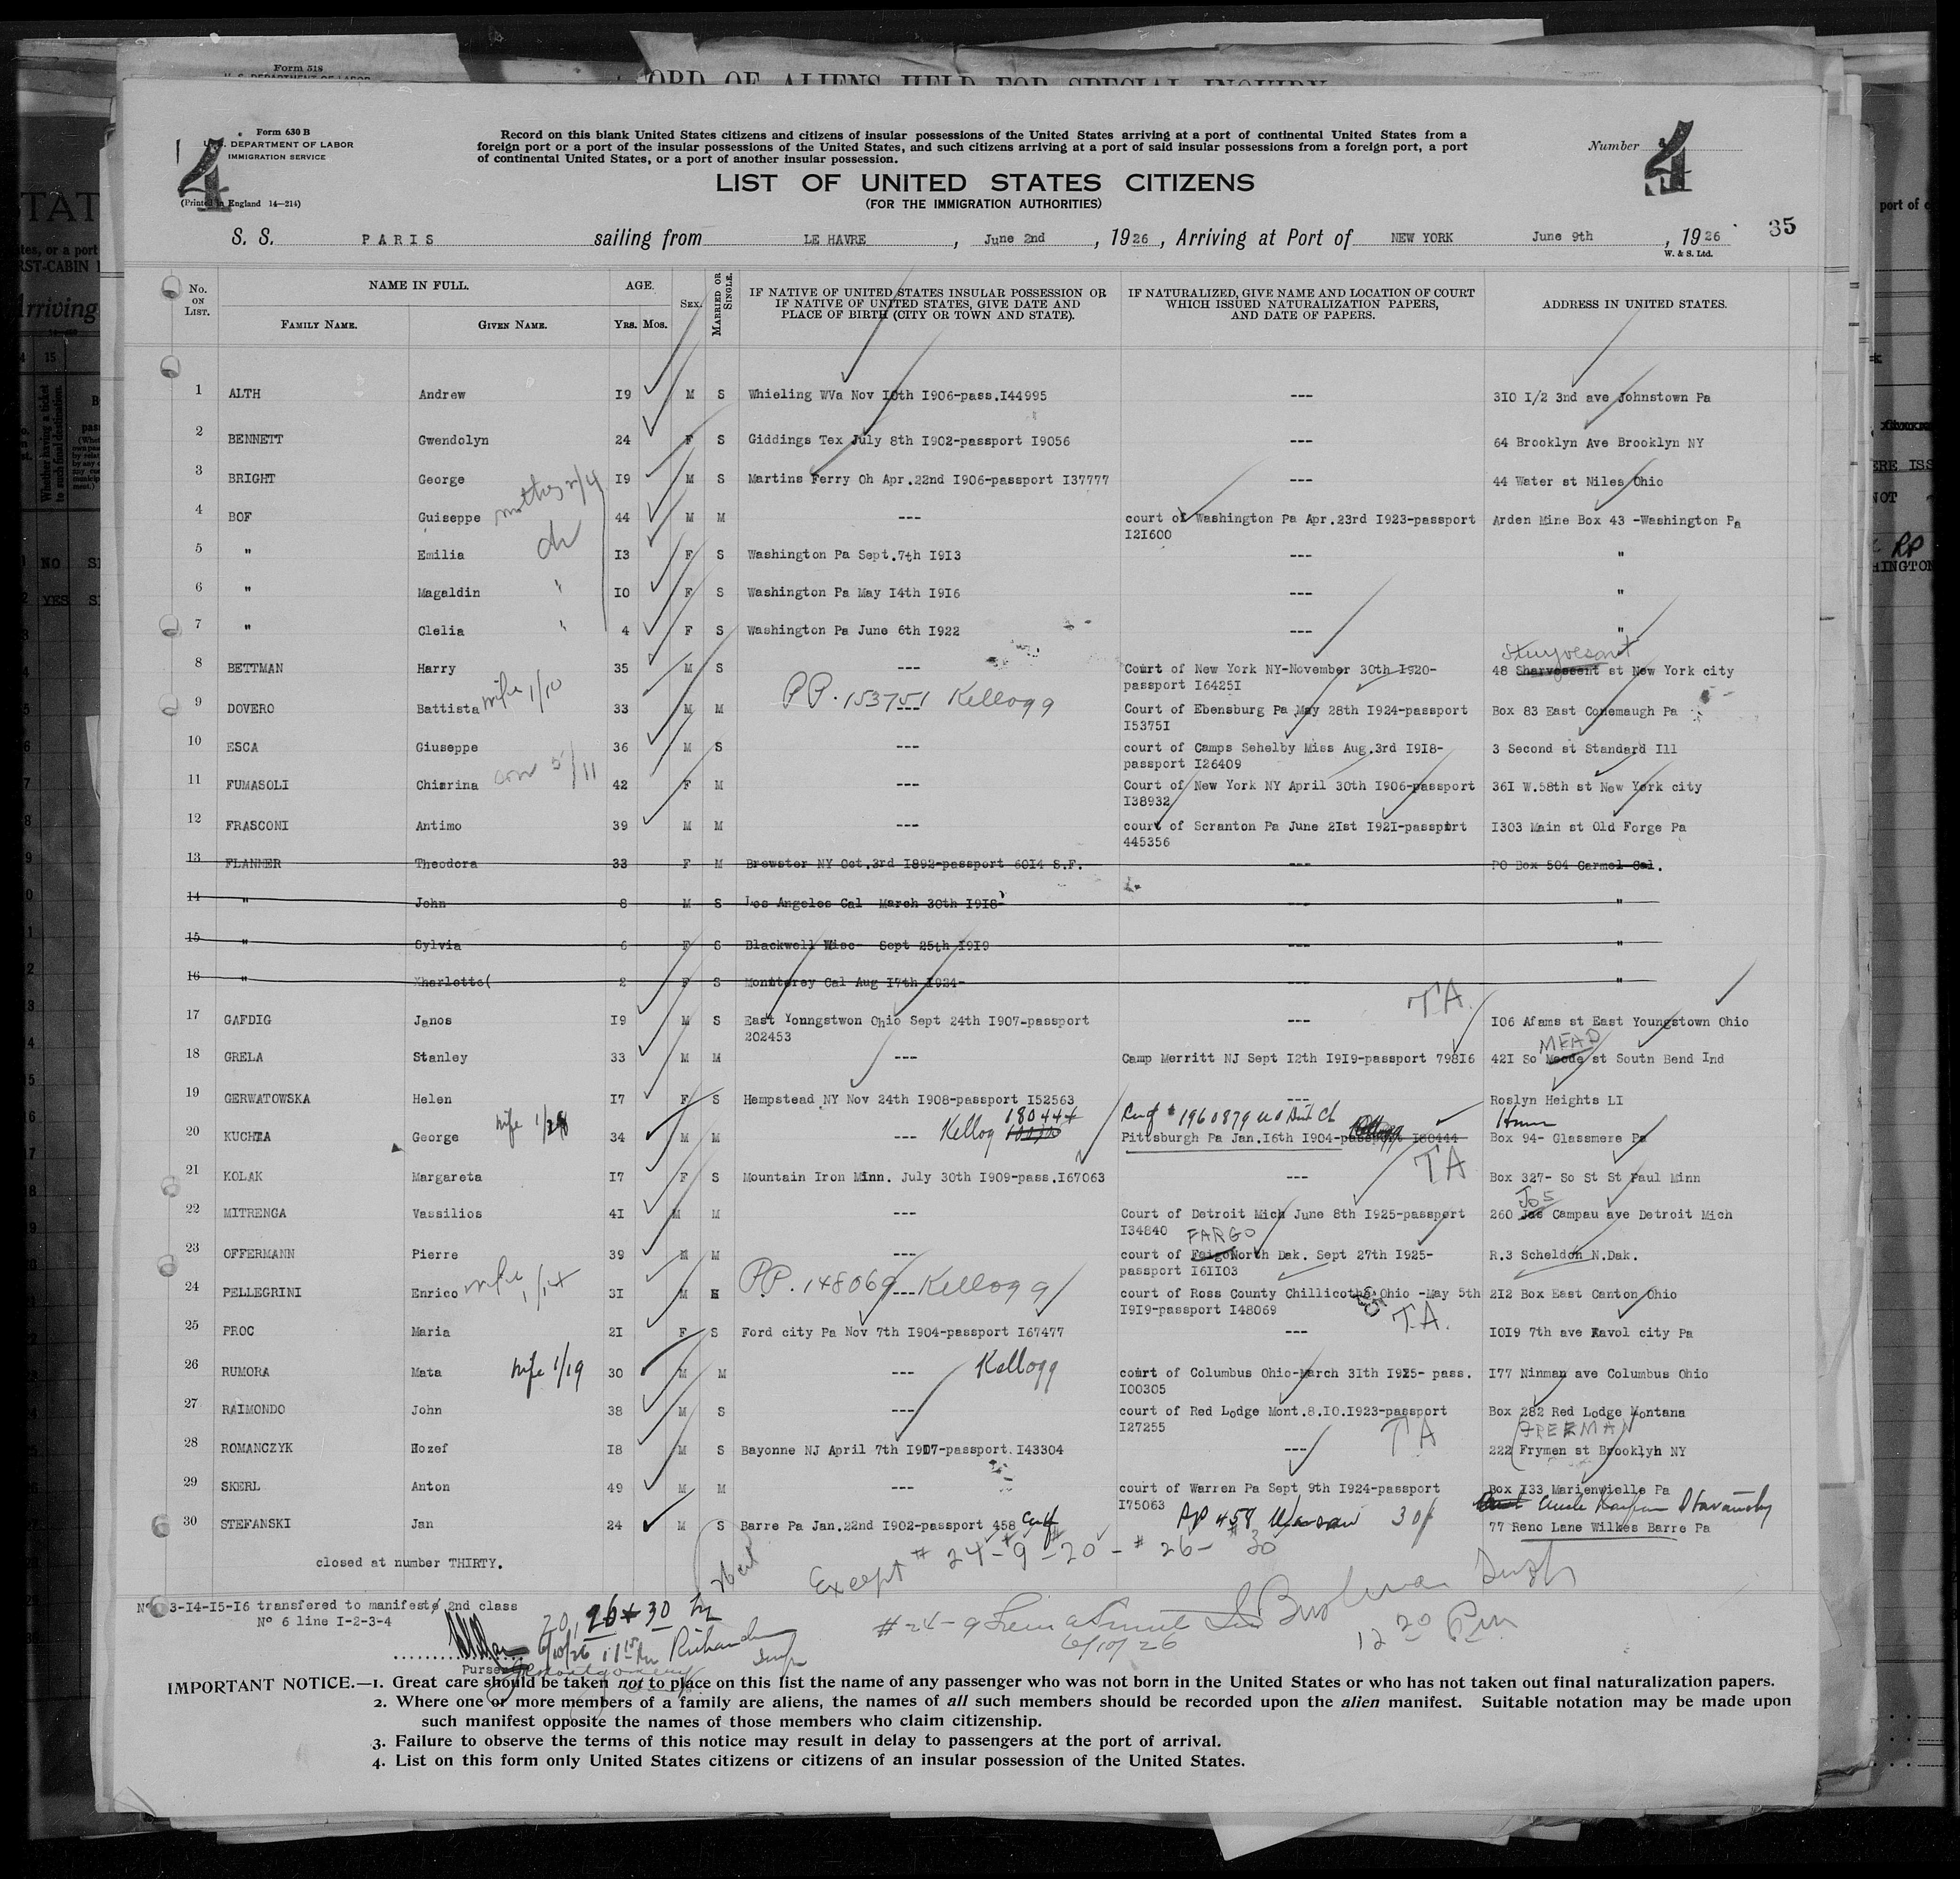 Form 518
ORD OF ALIENS HELD FOR SPECIAL INQUIRY
Form 630 B
U.S. DEPARTMENT OF LABOR
IMMIGRATION SERVICE
(Printed in England 14—214)
4
Record on this blank United States citizens and citizens of insular possessions of the United States arriving at a port of continental United States from a
foreign port or a port of the insular possessions of the United States, and such citizens arriving at a port of said insular possessions from a foreign port, a port
of continental United States, or a port of another insular possession.
Number 4
LIST OF UNITED STATES CITIZENS
(FOR THE IMMIGRATION AUTHORITIES)
S. S. PARIS sailing from LE HAVRE, June 2nd, 1926, Arriving at Port of NEW YORK June 9th, 1926
35
W. & S. Ltd.
No. ON LIST. NAME IN FULL. FAMILY NAME. GIVEN NAME. AGE. YRS. MOS. SEX. MARRIED OR SINGLE. IF NATIVE OF UNITED STATES INSULAR POSSESSION OR IF NATIVE OF UNITED STATES, GIVE DATE AND PLACE OF BIRTH (CITY OR TOWN AND STATE). IF NATURALIZED, GIVE NAME AND LOCATION OF COURT WHICH ISSUED NATURALIZATION PAPERS, AND DATE OF PAPERS. ADDRESS IN UNITED STATES.
1 ALTH Andrew I9 M S Whieling WVa Nov I0th I906-pass.I44995 --- 3I0 I/2 3nd ave Johnstown Pa
2 BENNETT Gwendolyn 24 F S Giddings Tex July 8th I902-passport I9056 --- 64 Brooklyn Ave Brooklyn NY
3 BRIGHT George I9 M S Martins Ferry Oh Apr.22nd I906-passport I37777 --- 44 Water st Niles Ohio
4 BOF Guiseppe 44 M M --- court of Washington Pa Apr.23rd I923-passport Arden Mine Box 43 -Washington Pa
I2I600
5 " Emilia I3 F S Washington Pa Sept.7th I9I3 --- "
6 " Magaldin " I0 F S Washington Pa May I4th I9I6 --- "
7 " Clelia ' 4 F S Washington Pa June 6th I922 --- "
Stuyvesant
8 BETTMAN Harry 35 M S --- Court of New York NY-November 30th I920- 48 Sharvessent st New York city
passport I6425I
9 DOVERO Battista wife 1/10 33 M M PP. 153751 Kellogg --- Court of Ebensburg Pa May 28th I924-passport Box 83 East Conemaugh Pa
I5375I
10 ESCA Giuseppe 36 M S --- court of Camps Sehelby Miss Aug.3rd I9I8- 3 Second st Standard Ill
passport I26409
11 FUMASOLI Chiarina 5/11 42 F M --- Court of New York NY April 30th I906-passport 36I W.58th st New York city
I38932
12 FRASCONI Antimo 39 M M --- court of Scranton Pa June 2Ist I92I-passport I303 Main st Old Forge Pa
445356
13 FLANNER Theodora 33 F M Brewster NY Oct.3rd I892-passport 60I4 S.F. --- PO Box 504 Carmel Cal.
14 " John 8 M S Los Angelos Cal March 30th I9I8 --- "
15 " Sylvia 6 F S Blackwell Wisc- Sept 25th I9I9 --- "
16 " Xharlotte( 2 F S Monterey Cal Aug I7th I924- --- "
TA.
17 GAFDIG Janos I9 M S East Yonngstwon Ohio Sept 24th I907-passport --- I06 Afams st East Youngstown Ohio
202453
MEAD
18 GRELA Stanley 33 M M --- Camp Merritt NJ Sept I2th I9I9-passport 798I6 42I So Meode st Soutn Bend Ind
19 GERWATOWSKA Helen I7 F S Hempstead NY Nov 24th I908-passport I52563 --- Roslyn Heights LI
20 KUCHTA George 34 M M --- Kellog Pittsburgh Pa Jan.I6th I904-passport I80444 Box 94- Glassmere Pa
TA
21 KOLAK Margareta I7 F S Mountain Iron Minn. July 30th I909-pass.I67063 --- Box 327- So St St Paul Minn
JOS
22 MITRENGA Vassilios 4I M M --- Court of Detroit Mich June 8th I925-passport 260 Jas Campau ave Detroit Mich
I34840 FARGO
23 OFFERMANN Pierre 39 M M --- court of FaigoNorth Dak. Sept 27th I925- R.3 Scheldon N.Dak.
passport I6II03
24 PELLEGRINI Enrico wife 1/14 3I M M PP. 148069 --- Kellogg court of Ross County Chillicothe Ohio -May 5th 2I2 Box East Canton Ohio
I9I9-passport I48069 T.A.
25 PROC Maria 2I F S Ford city Pa Nov 7th I904-passport I67477 --- I0I9 7th ave Ravol city Pa
26 RUMORA Mata wife 1/19 30 M M --- Kellogg court of Columbus Ohio-March 31th I925- pass. I77 Ninman ave Columbus Ohio
I00305
27 RAIMONDO John 38 M S --- court of Red Lodge Mont.8.I0.I923-passport Box 282 Red Lodge Montana
I27255 TA FREEMAN
28 ROMANCZYK Hozef I8 M S Bayonne NJ April 7th I907-passport.I43304 --- 222 Frymen st Brooklyh NY
29 SKERL Anton 49 M M --- court of Warren Pa Sept 9th I924-passport Box I33 Marienvielle Pa
I75063
30 STEFANSKI Jan 24 M S Barre Pa Jan.22nd I902-passport 458 PP 458 Warsaw 77 Reno Lane Wilkes Barre Pa
closed at number THIRTY.
Except # 24 - # 9 - 20 - # 26 - # 30
Nos I3-I4-I5-I6 transfered to manifest 2nd class
Nº 6 line I-2-3-4
20, 26 + 30
6/10/26
6/10/26
12 20 Pm
Purser
IMPORTANT NOTICE.—1. Great care should be taken not to place on this list the name of any passenger who was not born in the United States or who has not taken out final naturalization papers.
2. Where one or more members of a family are aliens, the names of all such members should be recorded upon the alien manifest. Suitable notation may be made upon
such manifest opposite the names of those members who claim citizenship.
3. Failure to observe the terms of this notice may result in delay to passengers at the port of arrival.
4. List on this form only United States citizens or citizens of an insular possession of the United States.